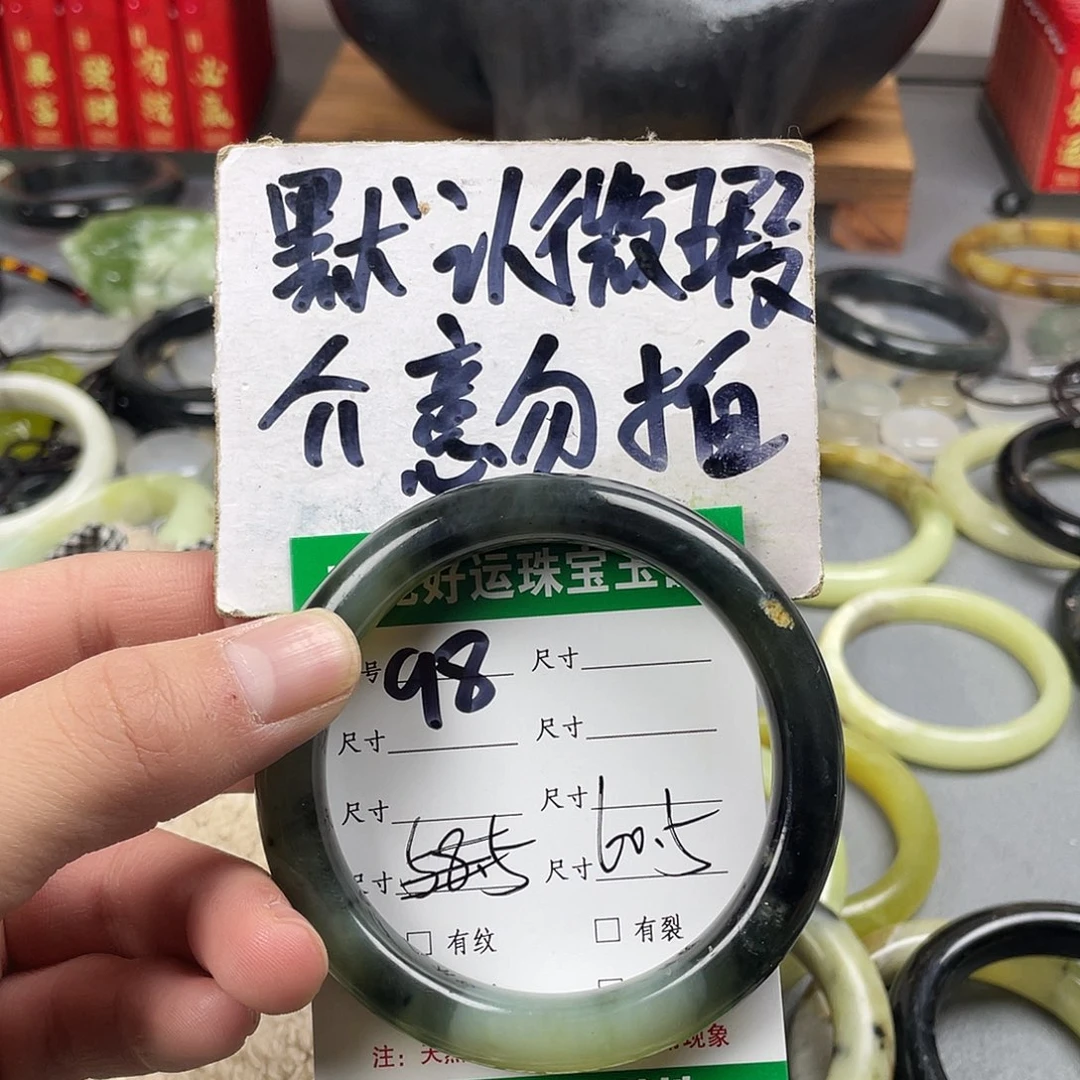 默认微瑕
介意勿拍
好运珠宝玉
号 98 尺寸
尺寸 尺寸
尺寸 尺寸
尺寸 58.5 尺寸 60.5
□ 有纹 □ 有裂
注: 天 现象